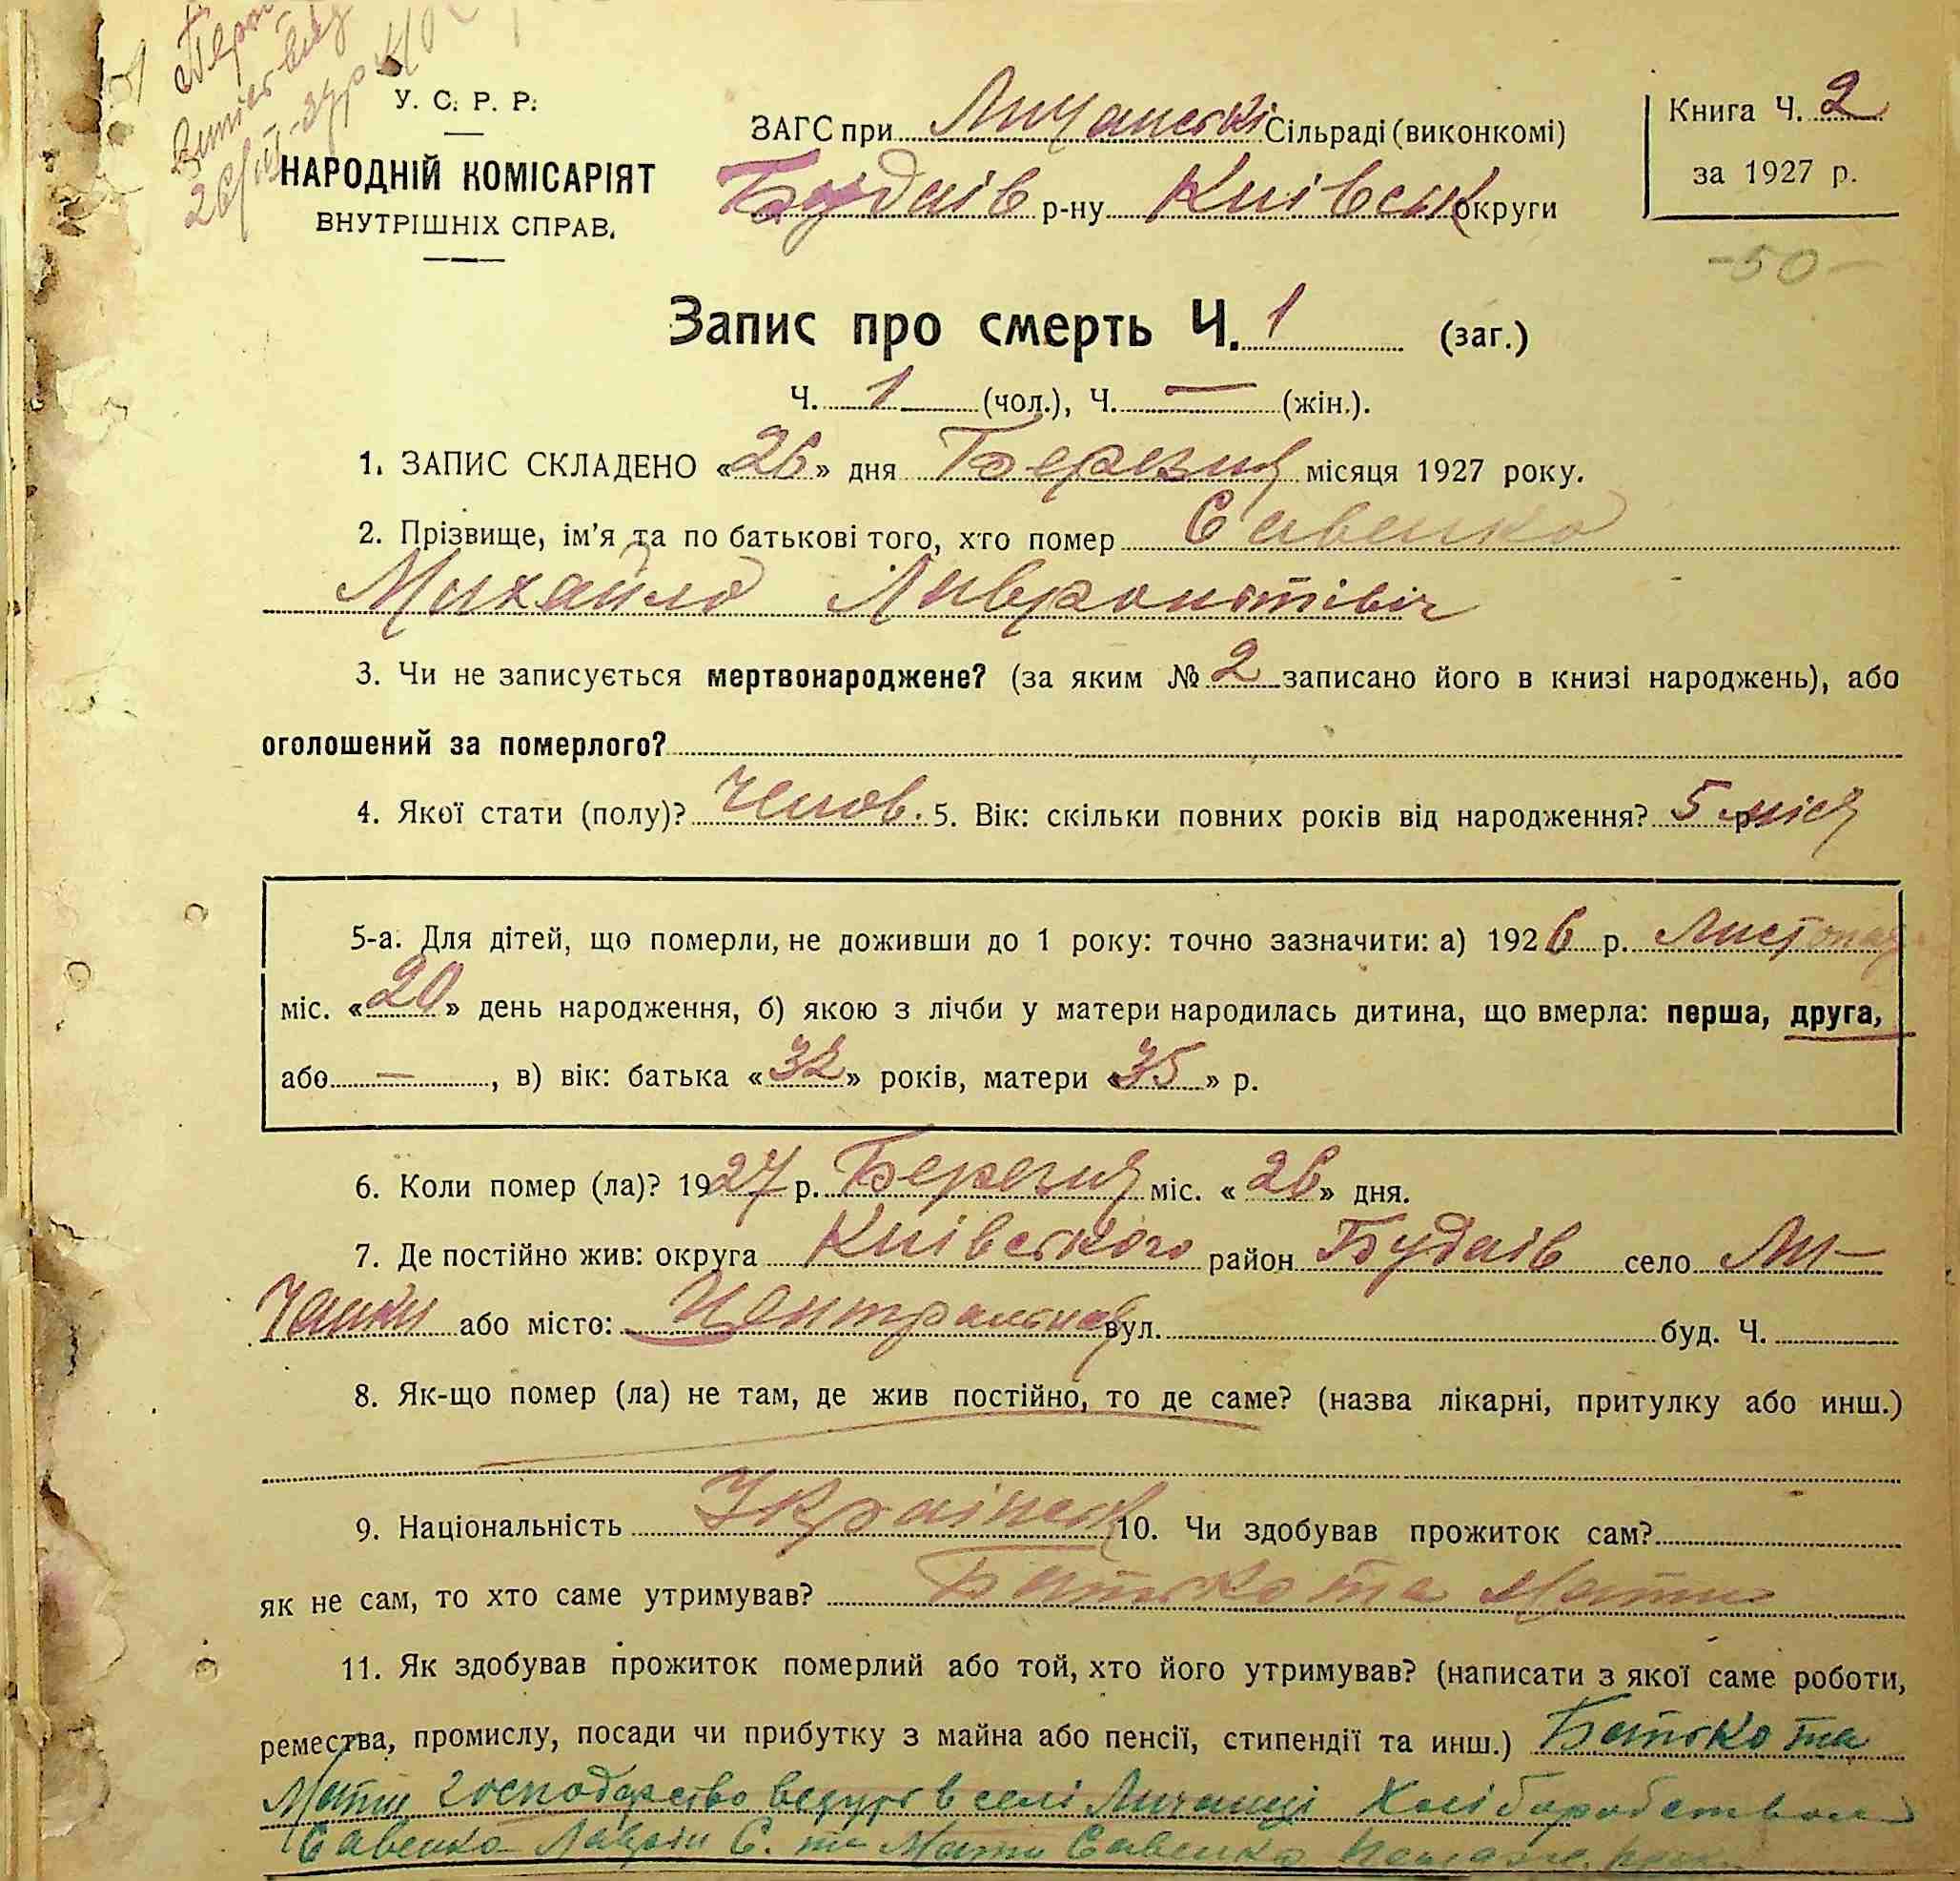 У. С. Р. Р.
НАРОДНІЙ КОМІСАРІЯТ
ВНУТРІШНІХ СПРАВ.
ЗАГС при Личанскі Сільраді (виконкомі)
Будаїв р-ну Київськ округи
Книга Ч. 2
за 1927 р.
-50-
Запис про смерть Ч. 1 (заг.)
Ч. 1 (чол.), Ч. — (жін.).
1. ЗАПИС СКЛАДЕНО «26» дня Березня місяця 1927 року.
2. Прізвище, ім'я та по батькові того, хто помер Савенко
Михайло
3. Чи не записується мертвонароджене? (за яким № 2 записано його в книзі народжень), або
оголошений за померлого?
4. Якої стати (полу)? Чолов. 5. Вік: скільки повних років від народження? 5 р. міся
5-а. Для дітей, що померли, не доживши до 1 року: точно зазначити: а) 1926 р. Листопад
міс. «20» день народження, б) якою з лічби у матери народилась дитина, що вмерла: перша, друга,
або — , в) вік: батька «32» років, матери «35» р.
6. Коли помер (ла)? 1927 р. Березня міс. «26» дня.
7. Де постійно жив: округа Київського район Будаїв село Ли-
чанки або місто: Центральна вул. буд. Ч.
8. Як-що помер (ла) не там, де жив постійно, то де саме? (назва лікарні, притулку або инш.)
9. Національність Українец 10. Чи здобував прожиток сам?
як не сам, то хто саме утримував? Батько та Мати
11. Як здобував прожиток померлий або той, хто його утримував? (написати з якої саме роботи,
ремества, промислу, посади чи прибутку з майна або пенсії, стипендії та инш.) Батько та
Мати господарство ведуть в селі Личанці Хліборобством
Савенко Лаврін С. та Мати Савенко